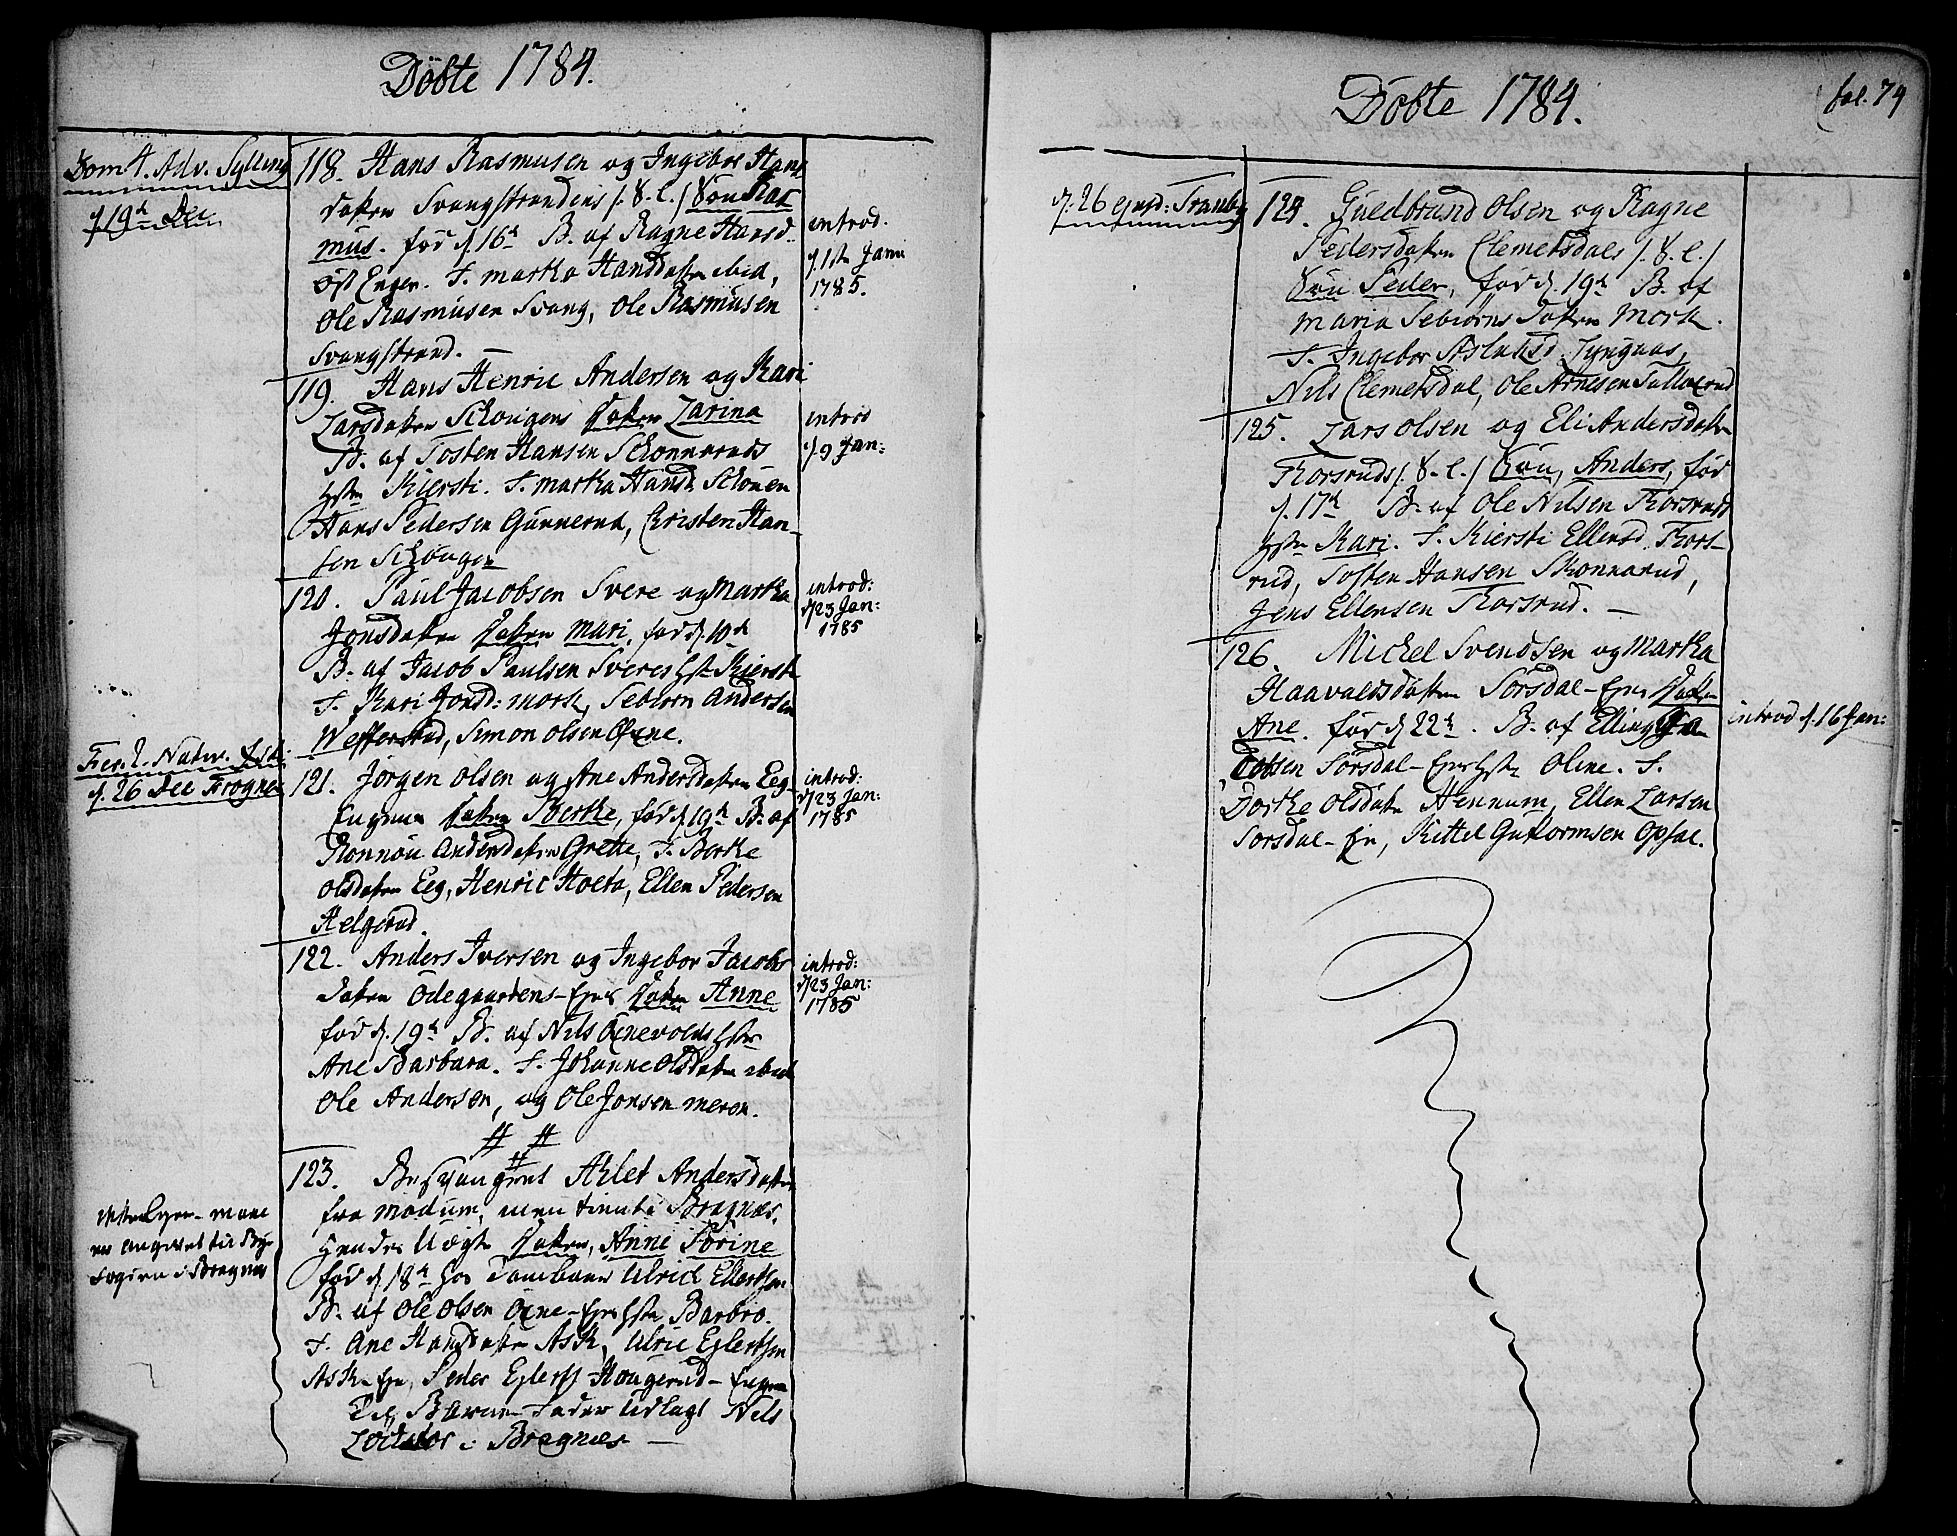 Döbte 1784.
Dom 4. Adv. Sylling
d 19de Dec
118. Hans Rasmusen og Ingebor Hans
daten Svangstrandens /: 8. l. / Sön Ras
mus. fød d. 16de B. af Ragne Hansd:
öst Enger. F. Martha Hansdaten ibid,
Ole Rasmusen Svang, Ole Rasmusen
Svangstrand. —
introd.
d. 1ste Janu
1785.
119. Hans Henric Andersen og Kari
Larsdaten Schougens Daten Larina
B. af Tosten Hansen Schonneruds
Hste Kiersti. F. Martha Hansd Schouen
Hans Pedersen Gunnerud, Christen Han-
sen Schougen
introd
d. 9 Jan:
120. Paul Jacobsen Svere og Martha
Jonsdaten Daten Mari, fød d. 10de
B. af Jacob Paulsen Sveres Hste Kiersti
F. Kari Jonsd: Morsk, Sebiorn Andersen
Wefferstad, Simon Olsen Öxne.
introd:
d 23 Jan:
1785
Fer. 2. Nativ.
d. 26 Dec Frogner
121. Jörgen Olsen og Ane Andersdaten Eeg-
Eugnes Daten Berthe, fød d 19de B. af
Ronnou Andersdaten Grette, F. Berthe
Olsdaten Eeg, Henric Hoeta, Ellen Pedersen
Helgerud.
introd:
d 23 Jan:
1785
122. Anders Iversen og Ingebor Jacobs
daten Ödegaardens-Eyes Daten Anne
fød d. 19de B. af Nils Öxnevolds Hste
Ane Barbara. F. Johanne Olsdaten ibid
Ole Andersen, og Ole Jonsen Meren.
introd:
d 23 Jan:
1785
123. Besvangret Ahlet Andersdaten
fra Modum, men tiente i Bragnæs,
Hendes Uægte Daten, Anne Sörine
fød d. 18de hos Ulrich Ellertsen
B. af Ole Olsen Öxne-Eyes Hste Barbro.
F. Ane Hansdaten Ask, Ulric Eylertsen
Ask-Eye, Peder Eylerts Haugerud-Eugnes
Til Barne-Fader Udlagt Nils
i Bragnæs —
er angivet til
Fogden i Bragnæs
Döbte 1784.
fol. 79
d. 26 ejusd: Tranby
124. Guldbrand Olsen og Ragne
Pedersdaten Clemetsdals /: 8. l. /
Sön Peder, fød d. 19de B. af
Maria Sebiörns Daten Mörk.
F. Ingebor Aslaksd Lyngaas,
Nils Clemetsdal, Ole Arnesen Sullerud
125. Lars Olsen og Eli Andersdaten
Thorsruds /: 8. l. / Sön, Anders, fød
d. 17de B. af Ole Nilsen Thorsruds
Hste Kari. F. Kiersti Ellensd. Thors-
rud, Tosten Hansen Skonnerud,
Jens Ellensen Thorsrud. —
126. Michel Svendsen og Martha
Haavaldsdaten Sörsdal-Eyes Daten
Ane. fød d 22de. B. af Elling Ja
cobsen Sörsdal-Eyes Hste Oline. F.
Dorthe Olsdaten Hennum, Ellen Larsen
Sorsdal-Eye, Kittel Guttormsen Opsal.
introd d. 16 Jan: